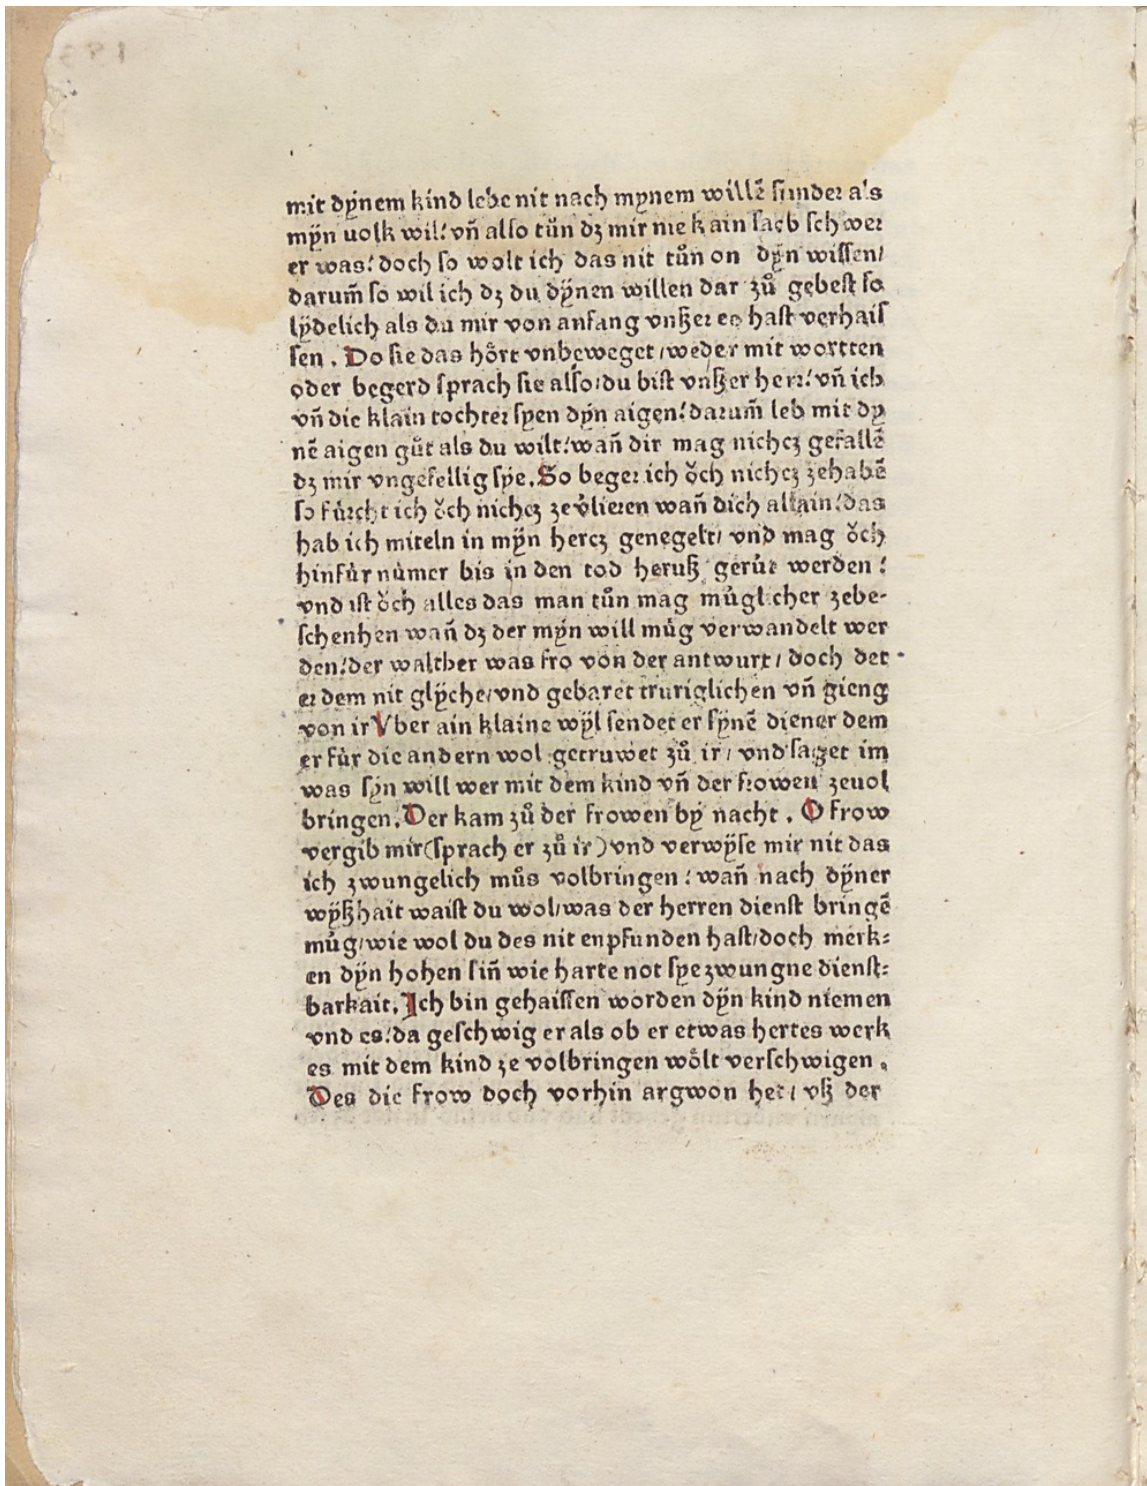 mit dÿnem kind lebe nit nach mynem willē sunder als
mÿn uolk wil! vn̄ also tůn dꝫ mir nie kain sach schwer
er was! doch so wolt ich das nit tůn on dÿn wissen/
darum̄ so wil ich dꝫ du dÿnen willen dar zů gebest so
lÿdelich als du mir von anfang vnßer ee hast verhais
sen . Do sie das hört vnbeweget /weder mit wortten
oder begerd sprach sie also/du bist vnßer herr! vn̄ ich
vn̄ die klain tochter syen dÿn aigen! darum̄ leb mit dy
nē aigen gůt als du wilt! wan̄ dir mag nichcz gefallē
dꝫ mir vngefellig sÿe. So beger ich öch nichcz zehabē
so fürcht ich öch nichcz zev̉lieren wan̄ dich allain! das
hab ich miteln in mÿn hercz genegelt/ vnd mag öch
hinfür nümer bis in den tod heruß gerüt werden !
vnd ist öch alles das man tůn mag müglicher zebe-
schenhen wan̄ dꝫ der mÿn will müg verwandelt wer
den! der walther was fro von der antwurt / doch det
er dem nit glÿche/vnd gebaret truriglichen vn̄ gieng
von ir Vber ain klaine wÿl sendet er sÿnē diener dem
er für die andern wol getruwet zů ir / vnd saget im
was syn will wer mit dem kind vn̄ der frowen zeuol
bringen. Der kam zů der frowen bÿ nacht . O frow
vergib mir (sprach er zů ir ) vnd verwÿse mir nit das
ich zwungelich můs volbringen ! wan̄ nach dÿner
wÿßhait waist du wol/was der herren dienst bringē
müg/wie wol du des nit enpfunden hast/doch merk=
en dÿn hohen sin̄ wie harte not sye zwungne dienst=
barkait. Ich bin gehaissen worden dÿn kind niemen
vnd es! da geschwig er als ob er etwas hertes werk
es mit dem kind ze volbringen wölt verschwigen .
Des die frow doch vorhin argwon het / vß der